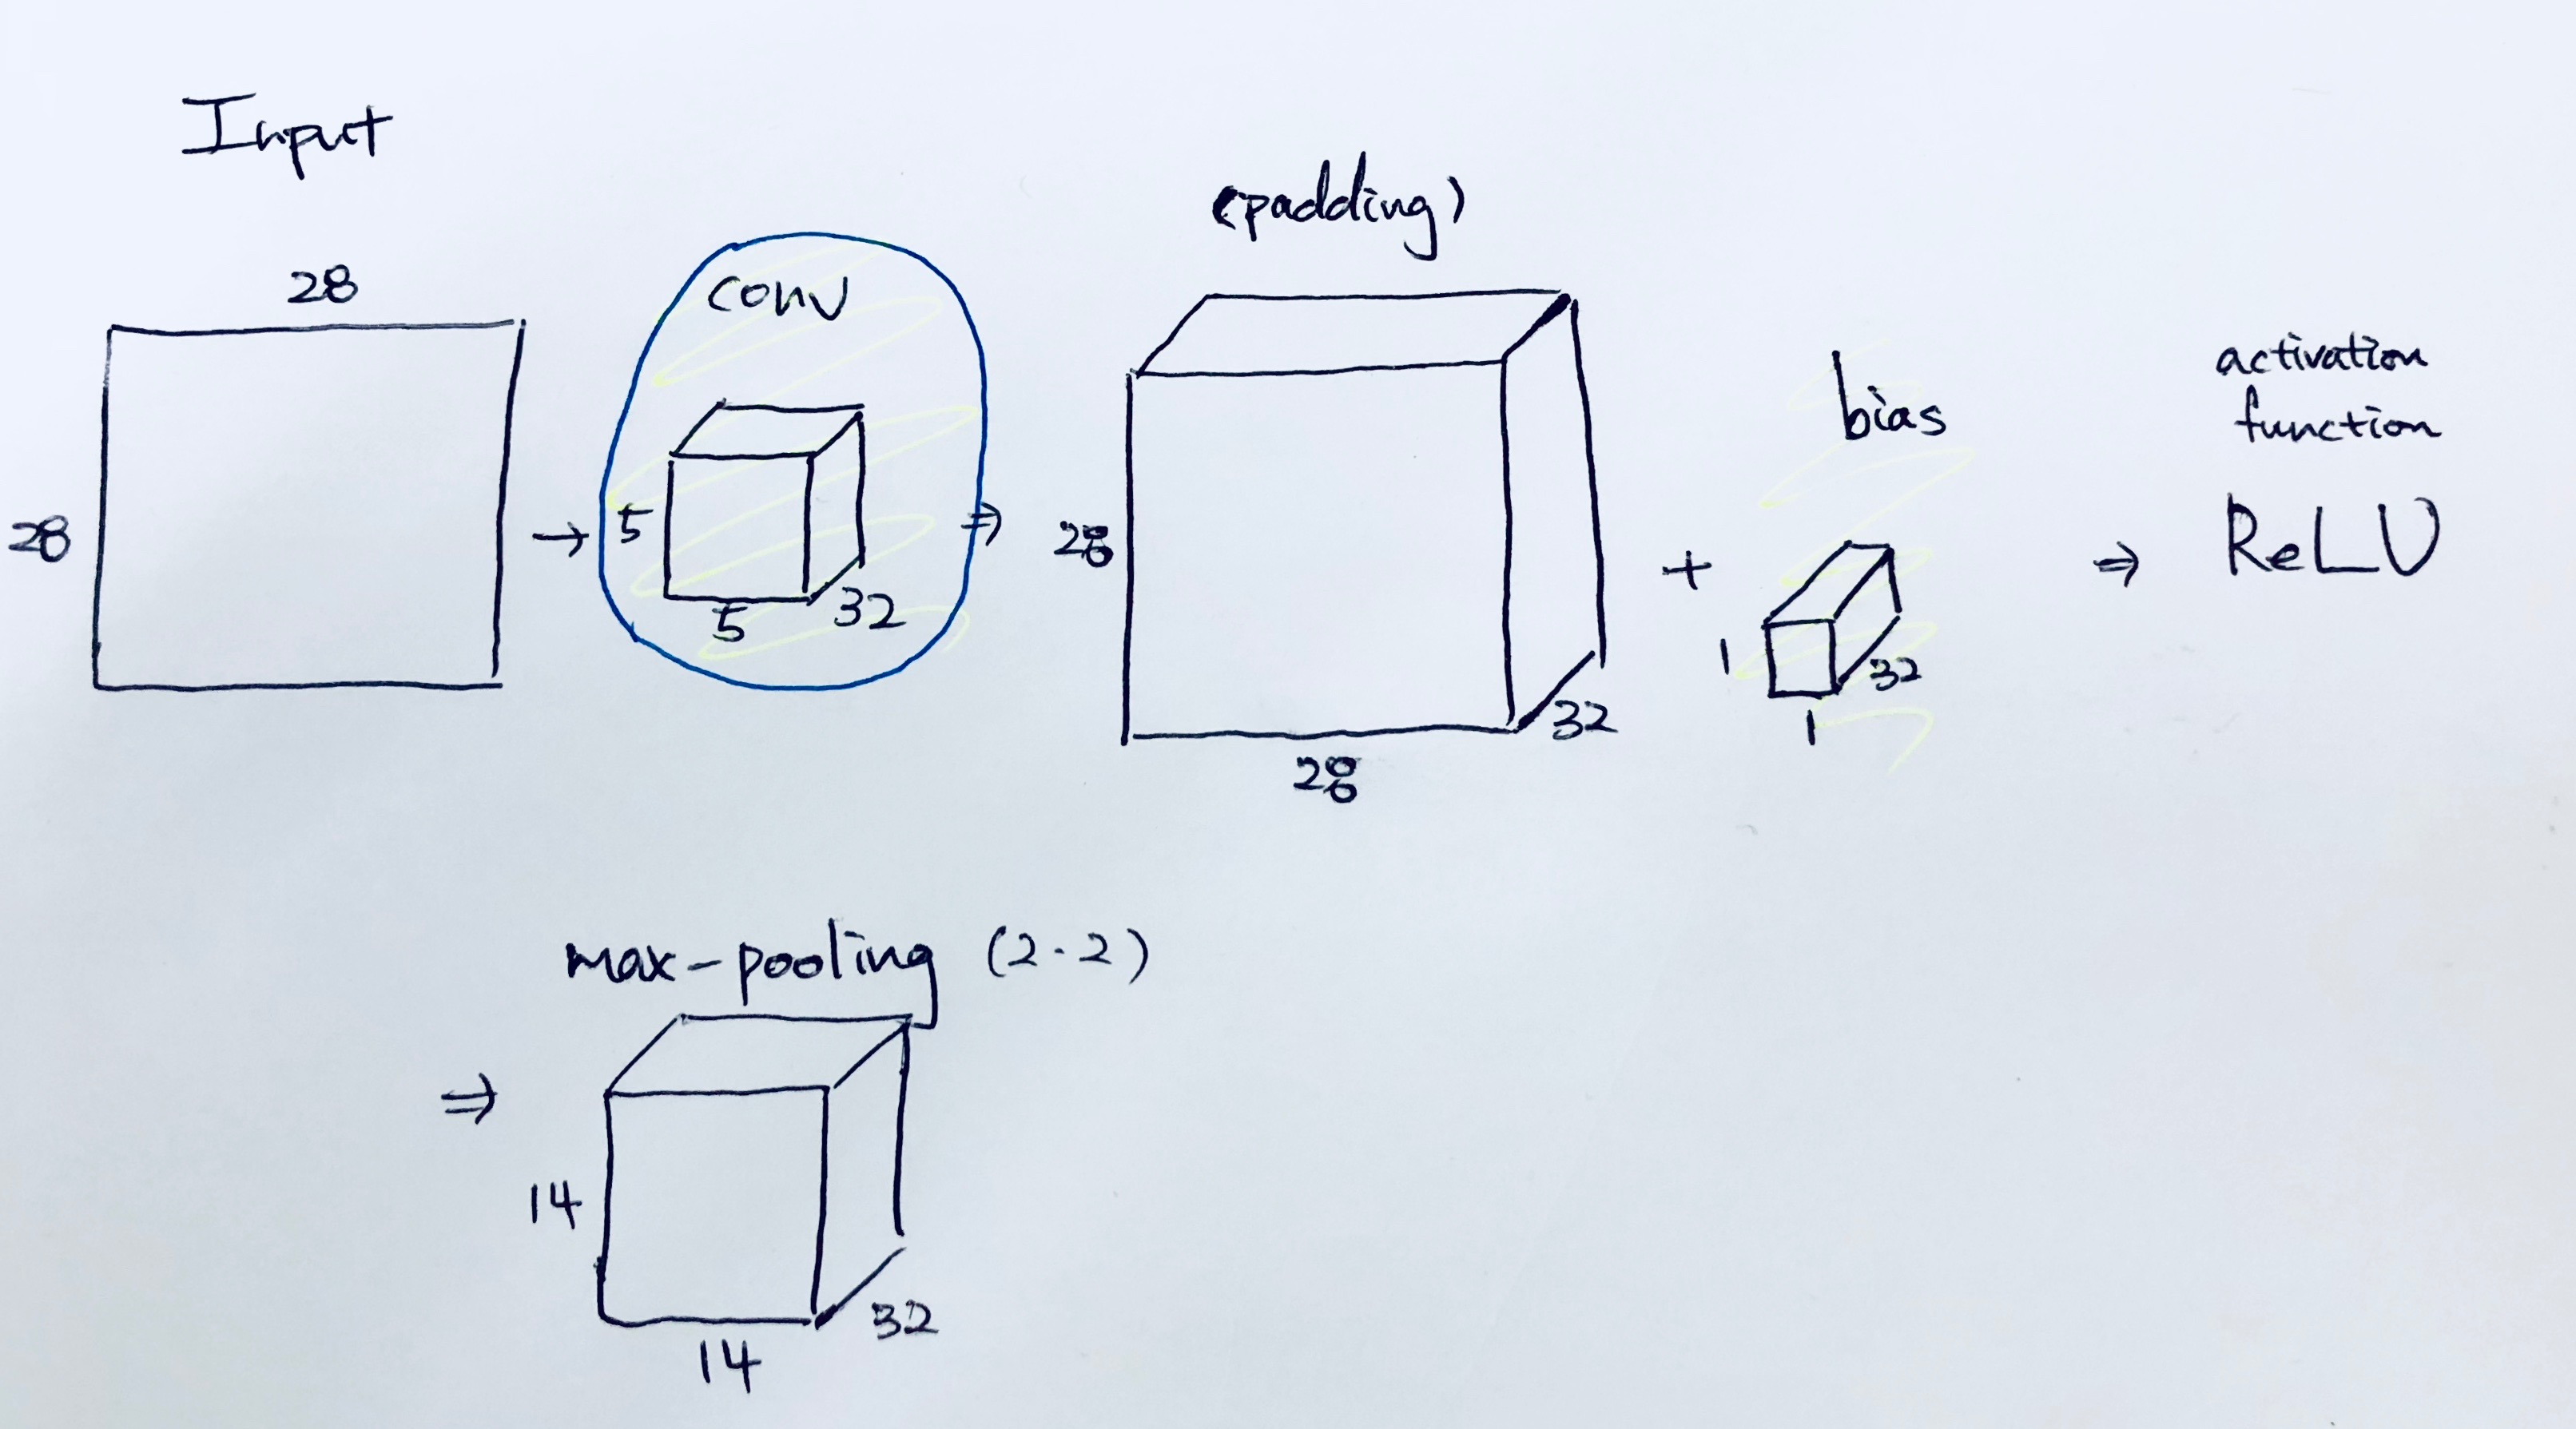 Input
28
28
→
conv
5
5
32
⇒
(padding)
28
28
32
+
bias
1
1
32
⇒
activation
function
ReLU
⇒
max-pooling (2·2)
14
14
32